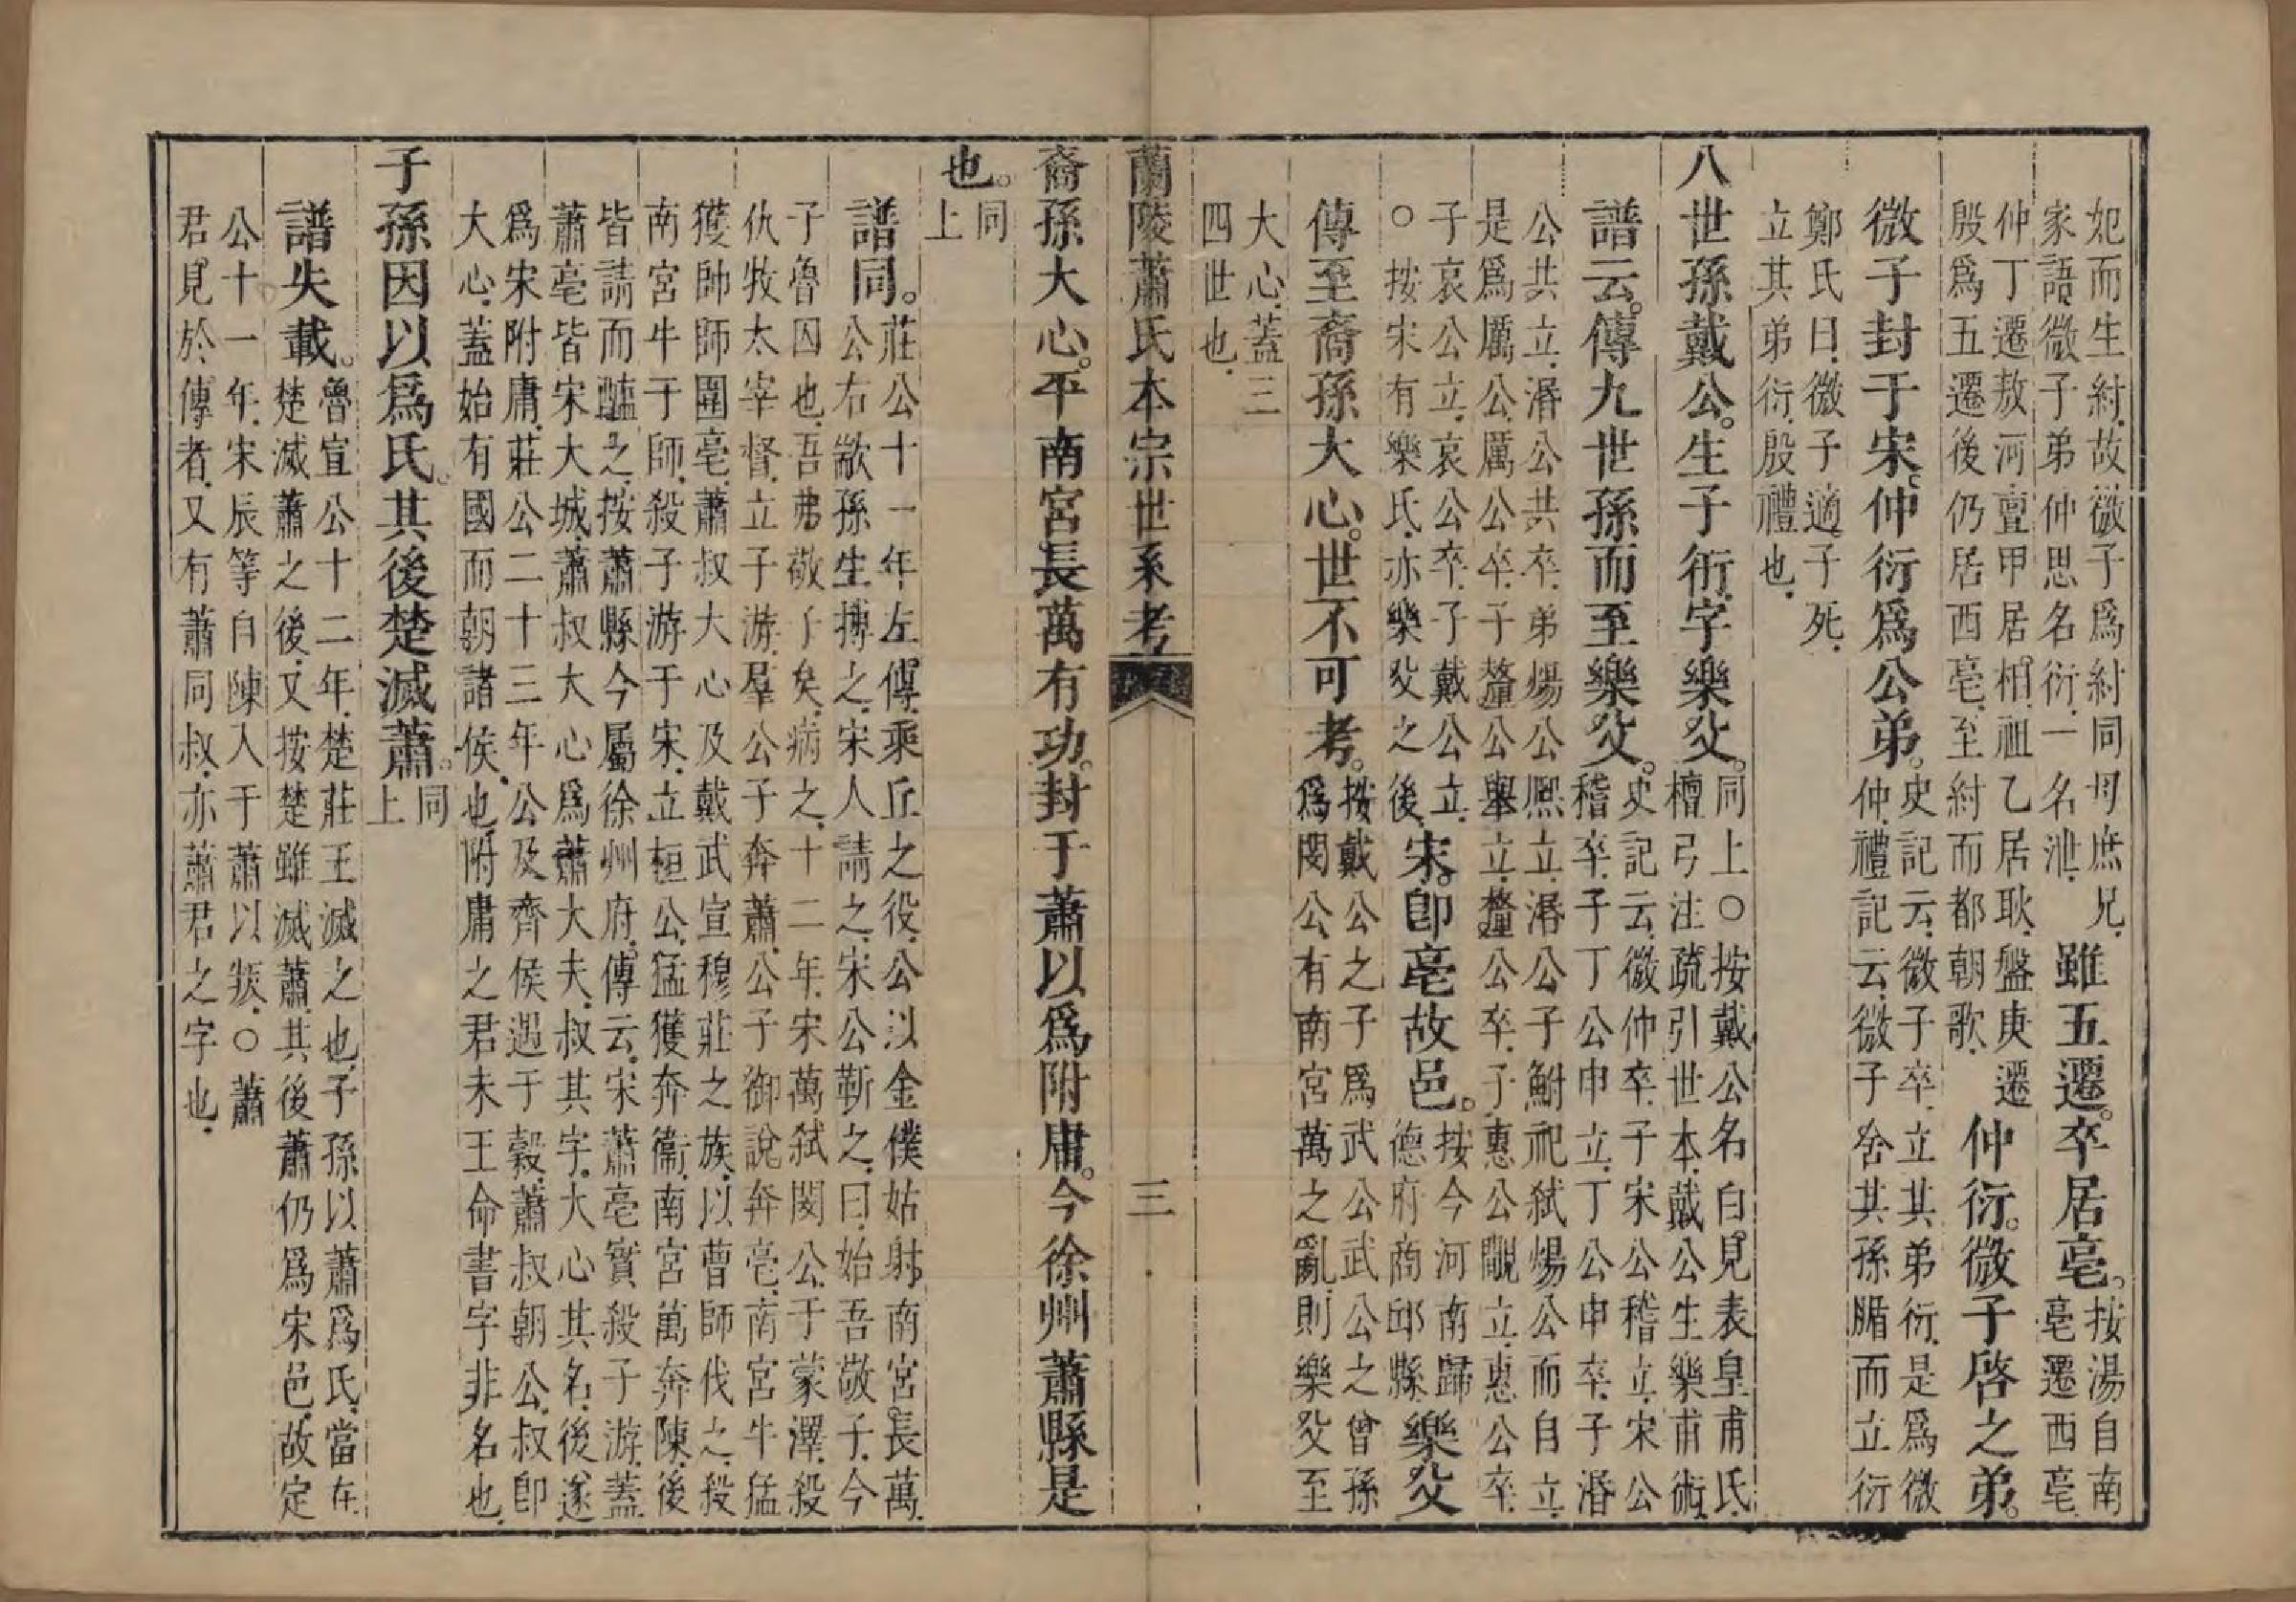 妃而生紂故微子爲紂同母庶兄
家語微子弟仲思名衍一名泄
雖五遷卒居亳
按湯自南
亳遷西亳
仲丁遷敖河亶甲居相祖乙居耿盤庚遷
殷爲五遷後仍居西亳至紂而都朝歌
仲衍微子啓之弟
微子封于宋仲衍爲公弟
史記云微子卒立其弟衍是爲微
仲禮記云微子舍其孫腯而立衍
鄭氏曰微子適子死
立其弟衍殷禮也
八世孫戴公生子衎字樂父
同上○按戴公名白見表皇甫氏
檀弓注疏引世本戴公生樂甫術
譜云傳九世孫而至樂父
史記云微仲卒子宋公稽立宋公
稽卒子丁公申立丁公申卒子湣
公共立湣公共卒弟煬公熙立湣公子鮒祀弒煬公而自立
是爲厲公厲公卒子釐公舉立釐公卒子惠公覵立惠公卒
子哀公立哀公卒子戴公立
○按宋有樂氏亦樂父之後
宋卽亳故邑
按今河南歸
德府商邱縣
樂父
傳至裔孫大心世不可考
按戴公之子爲武公武公之曾孫
爲閔公有南宮萬之亂則樂父至
大心蓋三
四世也
蘭陵蕭氏本宗世系考
三
裔孫大心平南宮長萬有功封于蕭以爲附庸今徐州蕭縣是
也
同
上
譜同
莊公十一年左傳乘丘之役公以金僕姑射南宮長萬
公右歂孫生搏之宋人請之宋公靳之曰始吾敬子今
子魯囚也吾弗敬子矣病之十二年宋萬弒閔公于蒙澤殺
仇牧太宰督立子游羣公子奔蕭公子御說奔亳南宮牛猛
獲帥師圍亳蕭叔大心及戴武宣穆莊之族以曹師伐之殺
南宮牛于師殺子游于宋立桓公猛獲奔衞南宮萬奔陳後
皆請而醢之按蕭縣今屬徐州府傳云宋蕭亳實殺子游蓋
蕭亳皆宋大城蕭叔大心爲蕭大夫叔其字大心其名後遂
爲宋附庸莊公二十三年公及齊侯遇于穀蕭叔朝公叔卽
大心蓋始有國而朝諸侯也附庸之君未王命書字非名也
子孫因以爲氏其後楚滅蕭
同
上
譜失載
魯宣公十二年楚莊王滅之也子孫以蕭爲氏當在
楚滅蕭之後又按楚雖滅蕭其後蕭仍爲宋邑故定
公十一年宋辰等自陳入于蕭以叛○蕭
君見於傳者又有蕭同叔亦蕭君之字也